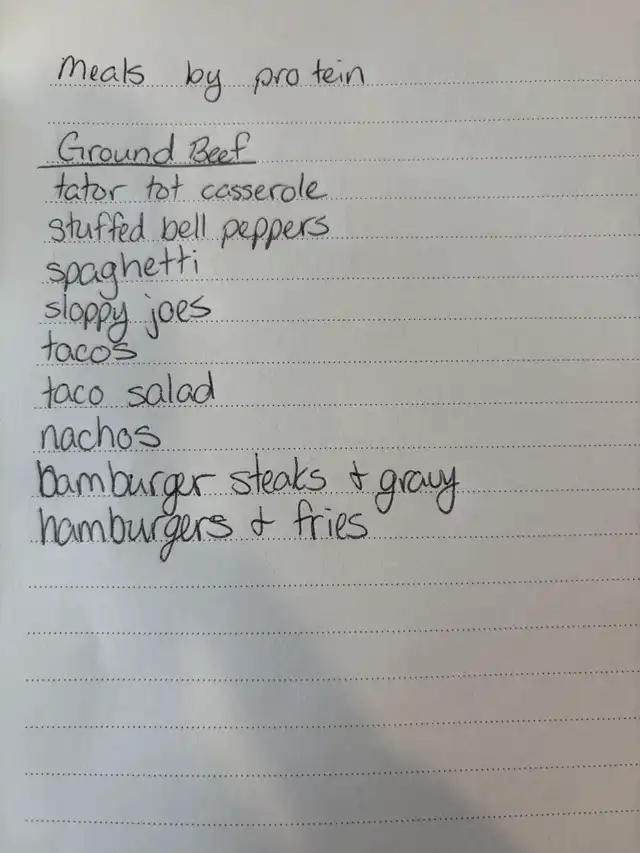 Meals by protein
Ground Beef
tator tot casserole
stuffed bell peppers
spaghetti
sloppy joes
tacos
taco salad
nachos
hamburger steaks + gravy
hamburgers + fries